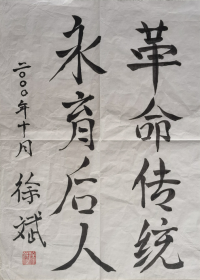 革命传统
永育后人
二〇〇〇年十月
徐斌